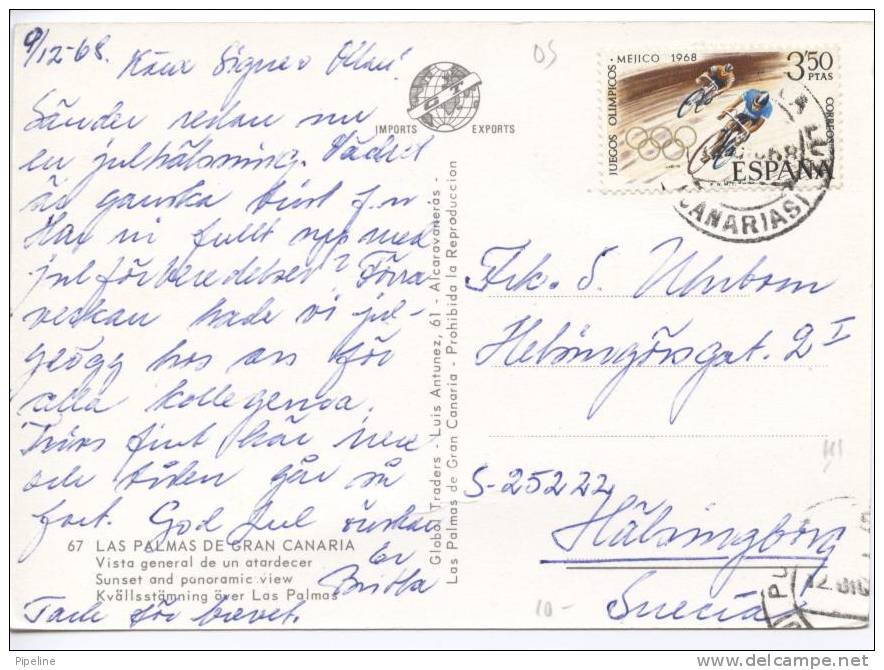 9/12-68.
Kära Signe o Ollan!
Sänder redan nu
en julhälsning. Vädret
är ganska
Har ni fullt upp med
julförberedelser? Förra
veckan hade vi jul-
glögg hos oss för
alla kollegerna.
fint här nere
och tiden går så
fort. God Jul önskar
Er
Britta
Tack för brevet.
IMPORTS GT EXPORTS
67 LAS PALMAS DE GRAN CANARIA
Vista general de un atardecer
Sunset and panoramic view
Kvällsstämning över Las Palmas
Global Traders - Luis Antunez, 61 - Alcaravaneras -
Las Palmas de Gran Canaria - Prohibida la Reproduccion
JUEGOS OLIMPICOS · MEJICO 1968
3'50
PTAS
CORREOS
ESPAÑA
CANARIAS)
Frk. S.
Helsingörsgat. 2 I
S-25222
Hälsingborg
Suecia
10-
12 DIC
Pipeline
http://pipeline.delcampe.net